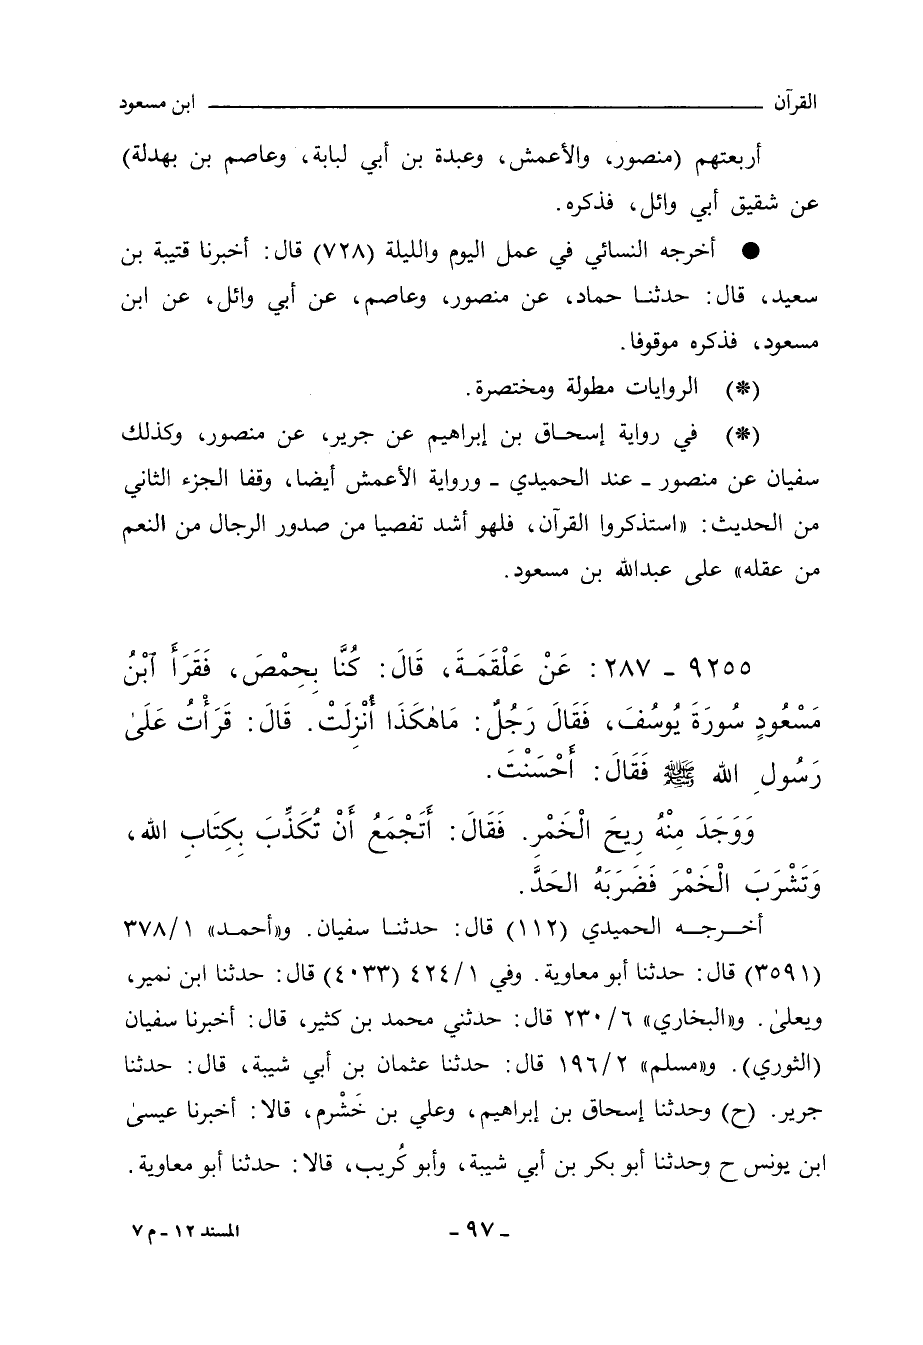 القرآن ابن مسعود
أربعتهم (منصور، والأعمش، وعبدة بن أبي لبابة، وعاصم بن بهدلة)
عن شقيق أبي وائل، فذكره.
● أخرجه النسائي في عمل اليوم والليلة (٧٢٨) قال: أخبرنا قتيبة بن
سعيد، قال: حدثنا حماد، عن منصور، وعاصم، عن أبي وائل، عن ابن
مسعود، فذكره موقوفا.
(*) الروايات مطولة ومختصرة.
(*) في رواية إسحاق بن إبراهيم عن جرير، عن منصور، وكذلك
سفيان عن منصور ـ عند الحميدي ـ ورواية الأعمش أيضا، وقفا الجزء الثاني
من الحديث: «استذكروا القرآن، فلهو أشد تفصيا من صدور الرجال من النعم
من عقله» على عبدالله بن مسعود.
٩٢٥٥ ـ ٢٨٧: عَنْ عَلْقَمَةَ، قَالَ: كُنَّا بِحِمْصَ، فَقَرَأَ ٱبْنُ
مَسْعُودٍ سُورَةَ يُوسُفَ، فَقَالَ رَجُلٌ: مَاهٰكَذَا أُنْزِلَتْ. قَالَ: قَرَأْتُ عَلَىٰ
رَسُولِ الله ﷺ فَقَالَ: أَحْسَنْتَ.
وَوَجَدَ مِنْهُ رِيحَ الْخَمْرِ. فَقَالَ: أَتَجْمَعُ أَنْ تُكَذِّبَ بِكِتَابِ الله،
وَتَشْرَبَ الْخَمْرَ فَضَرَبَهُ الحَدَّ.
أخرجه الحميدي (١١٢) قال: حدثنا سفيان. و«أحمد» ٣٧٨/١
(٣٥٩١) قال: حدثنا أبو معاوية. وفي ٤٢٤/١ (٤٠٣٣) قال: حدثنا ابن نمير،
ويعلىٰ. و«البخاري» ٢٣٠/٦ قال: حدثني محمد بن كثير، قال: أخبرنا سفيان
(الثوري). و«مسلم» ١٩٦/٢ قال: حدثنا عثمان بن أبي شيبة، قال: حدثنا
جرير. (ح) وحدثنا إسحاق بن إبراهيم، وعلي بن خَشْرم، قالا: أخبرنا عيسىٰ
ابن يونس ح وحدثنا أبو بكر بن أبي شيبة، وأبو كُريب، قالا: حدثنا أبو معاوية.
ـ ٩٧ ـ المسند ١٢ ـ م ٧